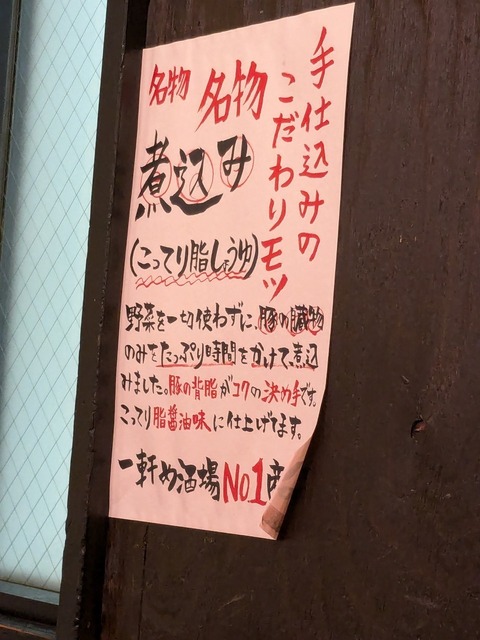 手仕込みの
こだわりモツ
名物 名物
煮込み
(こってり脂しょうゆ)
野菜を一切使わずに、豚の臓物
のみをたっぷり時間をかけて、煮込
みました。豚の背脂がコクの決め手です。
こってり脂醤油味に仕上げてます。
一軒め酒場No1商